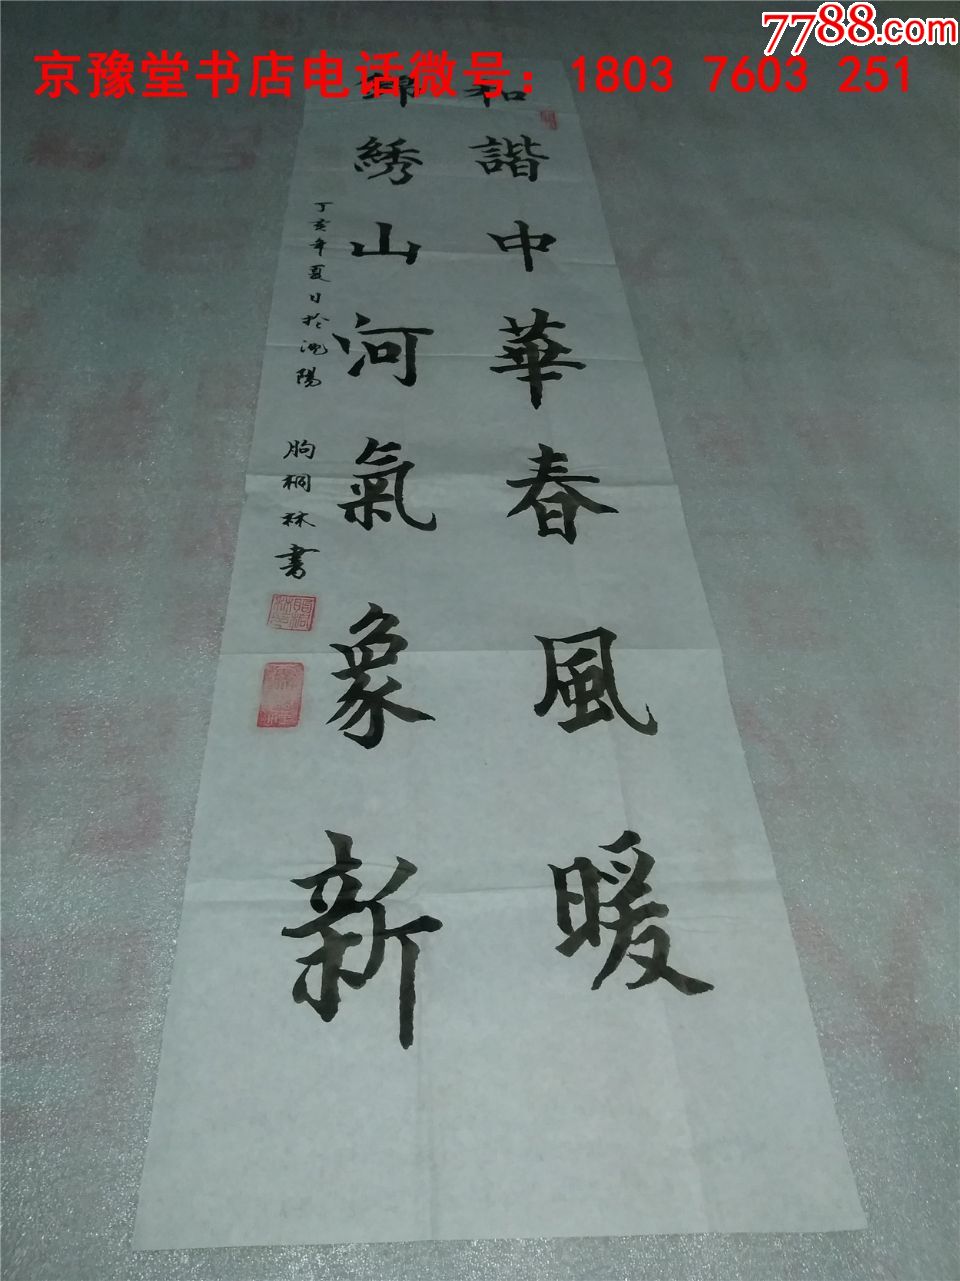 7788.com
京豫堂书店电话微号：1803 7603 251
和諧中華春風暖
錦綉山河氣象新
丁亥年夏日於沈陽
桐林書